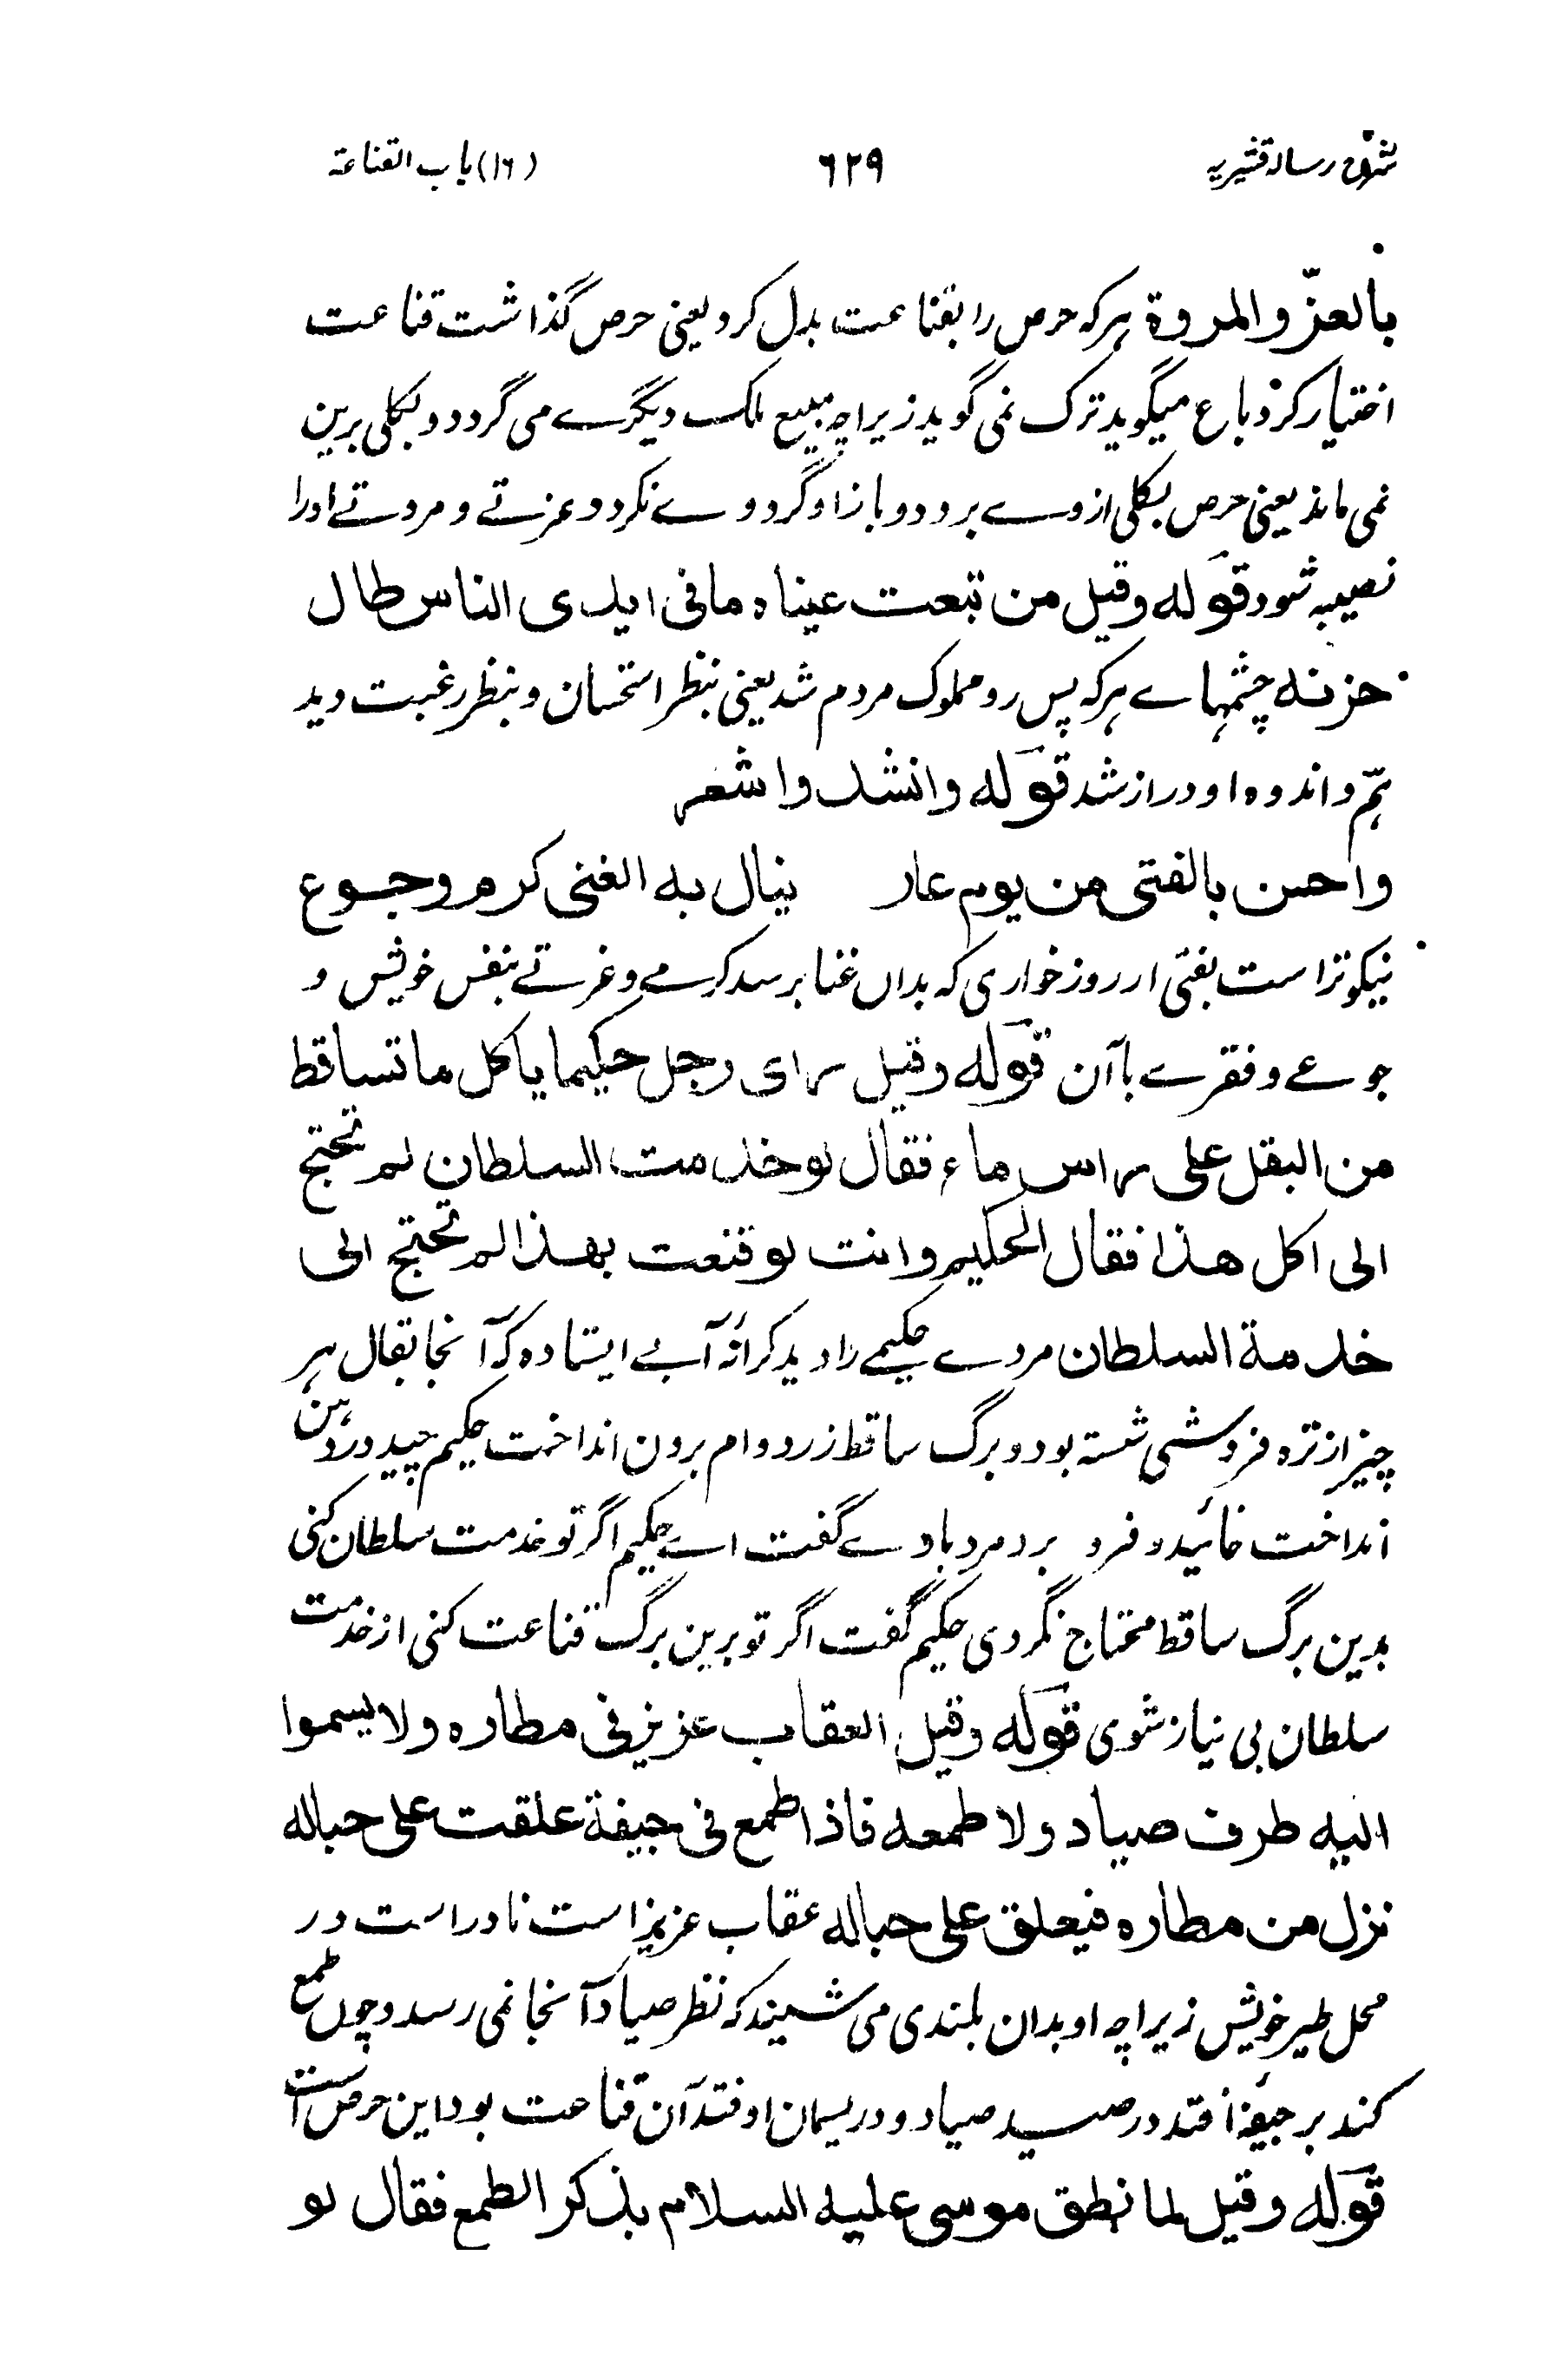 شرح رسالہ قشیریہ ٦٢٩ (١٦) باب القناعة
بالعزّ والمروة ہر کہ حرص را بقناعت بدل کرد یعنی حرص گذاشت قناعت
اختیار کرد باع میگوید ترک نمی گوید زیراچہ مبیع ملک دیگرے می گردد و بکلی برین
نمی ماند یعنی حرص بکلی ازوے برود و باز او گرد وے نکرد و عزتے و مروتے اورا
نصیبہ شود قولہ وقیل من تبعت عیناہ مافی ایدی الناس طال
حزنہ چشمہاے ہرکہ پس رو مملوک مردم شد یعنی بنظر استحسان و بنظر رغبت دید
ہمّ و اندوہ او دراز شد قولہ وانشدوا شعر
واحسن بالفتی من یوم عار ینال بہ الغنی کرم وجوع
نیکوتر است بفتی از روز خواری کہ بداں غنا برسد کرمے و عزتے بنفس خویش و
جوعے و فقرے باآن قولہ وقیل رای رجل حکیما یاکل ما تساقط
من البقل علی راس ماء فقال لو خدمت السلطان لم تحتج
الی اکل ھذا فقال الحکیم وانت لو قنعت بھذا لم تحتج الی
خدمة السلطان مردے حکیمے را دید کرانہ آبے ایستادہ کہ آنجا بقال ہر
چیز از ترہ فروشی شستہ بود و برگ ساقط زرد وام برون انداخت حکیم چید و در دہن
انداخت خائید و فرو برد مرد باوے گفت اے حکیم اگر تو خدمت سلطان کنی
بدین برگ ساقط محتاج نگردی حکیم گفت اگر تو برین برگ قناعت کنی از خدمت
سلطان بی نیاز شوی قولہ وقیل العقاب عزیز فی مطارہ ولا یسموا
الیہ طرف صیاد ولا طمعہ فاذا طمع فی جیفة علقت علی حبالہ
نزل من مطارہ فیعلق علی حبالہ عقاب عزیز است نادر است در
محل طیر خویش زیراچہ او بدان بلندی می شیند کہ نظر صیاد آنجا نمی رسد و چوں طمع
کند بر جیفہ افتد در صید صیاد و در ریسمان او فتد آن قناعت بود این حرص است
قولہ وقیل لما نطق موسی علیہ السلام بذکر الطمع فقال لو